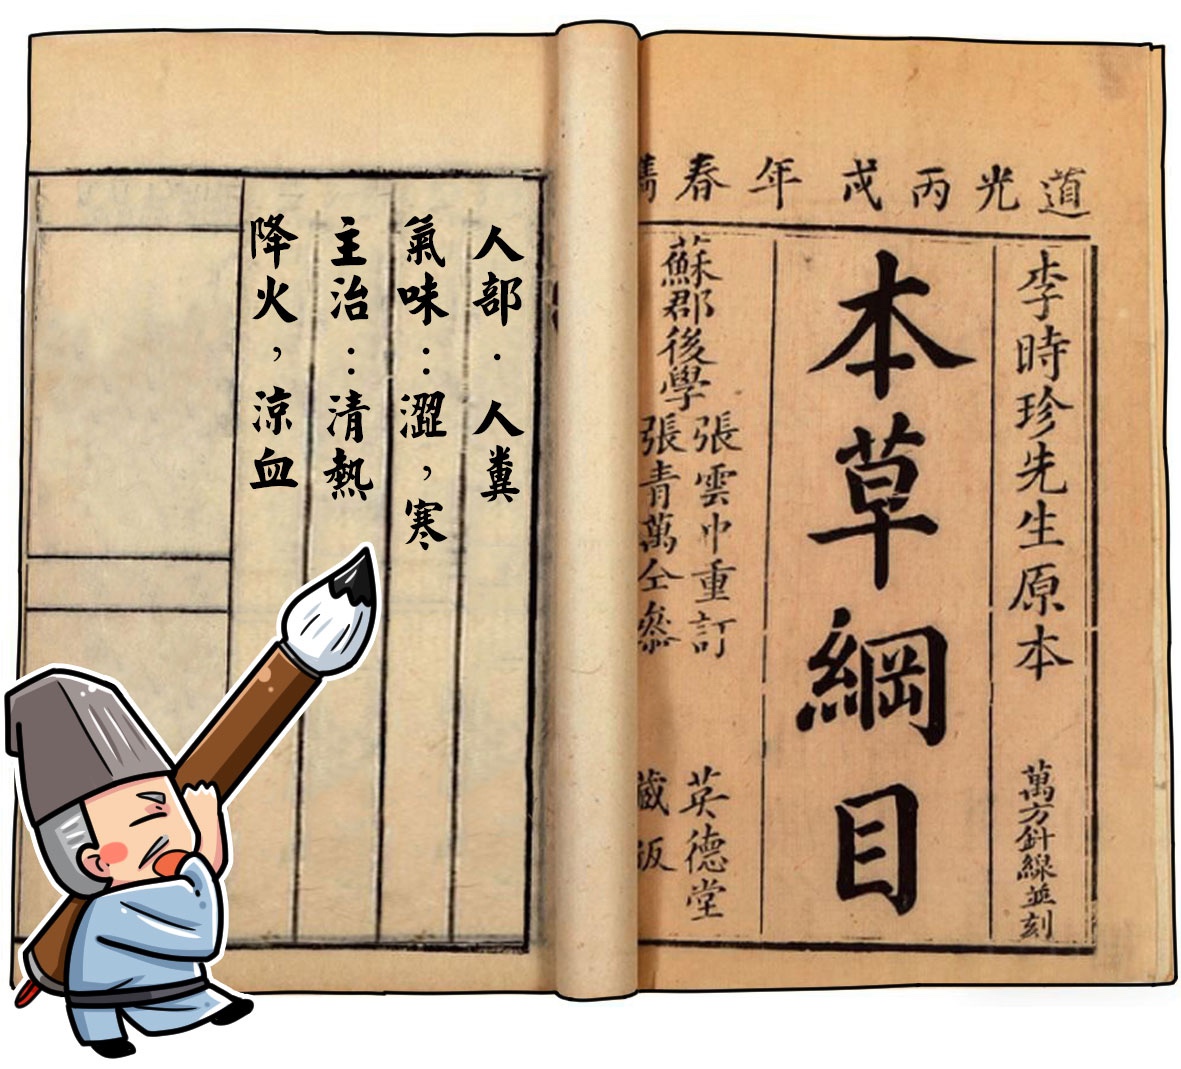 道光丙戌年春鐫
李時珍先生原本
萬方針線並刻
本草綱目
蘇郡後學
張雲中重訂
張青萬仝參
英德堂
藏版
人部·人糞
氣味:澀,寒
主治:清熱
降火,涼血